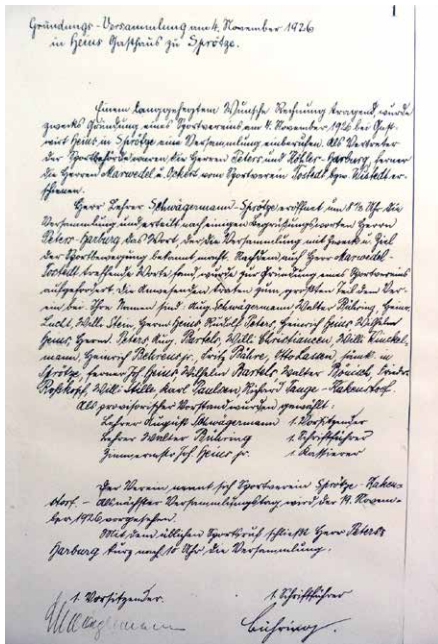 1
Gründungs-Versammlung am 4. November 1926
in Heins Gasthaus zu Sprötze.
Einem langgehegtem Wunsche Rechnung tragend, wurde
zwecks Gründung eines Sportvereins am 4. November 1926 bei Gast-
wirt Heins in Sprötze eine Versammlung einberufen. Als Vertreter
der Sportbehörde waren die Herren Peters und Köhler-Harburg, ferner
die Herren Marwedel u. Eckert vom Sportverein Tostedt bzw. Kistedt er-
schienen.
Herr Lehrer Schwägermann-Sprötze eröffnet um 8¼ Uhr die
Versammlung und erteilt nach einigen Begrüßungsworten Herrn
Peters-Harburg das Wort, der die Versammlung mit Zweck u. Ziel
der Sportbewegung bekannt macht. Nachdem auch Herr Marwedel-
Tostedt treffende Worte fand, wurde zur Gründung eines Sportvereins
aufgefordert. Die Anwesenden traten zum größten Teil dem Ver-
ein bei. Ihre Namen sind: Aug. Schwägermann, Walter Bühring, Heinr.
Lucht, Willi Stein, Herm. Heins, Rudolf Peters, Heinrich Heins, Wilhelm
Heins, Herm. Peters, Aug. Bartels, Willi Christiansen, Willi Kinckel-
mann, Heinrich Behrens jr., Fritz Bähre, Otto Lassen, sämtl. in
Sprötze, ferner Joh. Heins, Wilhelm Bartels, Walter
Roßkopf, Will. Stille, Karl Paulsen, Richard Lange-Kakenstorf.
Als provisorischer Vorstand wurden gewählt:
Lehrer August Schwägermann 1. Vorsitzender
Lehrer Walter Bühring 1. Schriftführer
Zimmermstr. Joh. Heins jr. 1. Kassierer
Der Verein nennt sich Sportverein Sprötze-Kaken-
storf. – Als nächster Versammlungstag wird der 19. Novem-
ber 1926 vorgesehen.
Mit dem üblichen Sportsruf schließt Herr Peters-
Harburg kurz nach 10 Uhr die Versammlung.
1. Vorsitzender. 1. Schriftführer
Schwägermann Bühring.